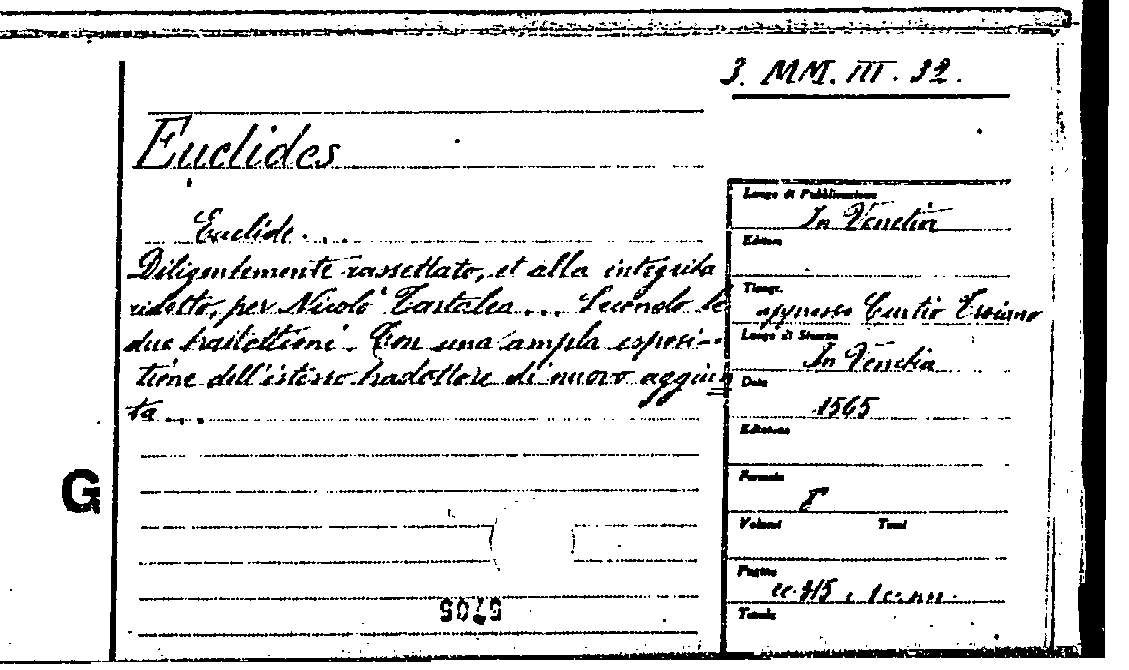 3. MM. III. 32.
Euclides
Euclide. ...
Diligentemente rassettato, et alla integrita
ridotto, per Nicolò Tartalea ... Secondo le
due tradottioni. Con una ampla esposi-
tione dell'istesso tradottore di nuovo aggiun
ta ...
Luogo di Pubblicazione
In Venetia
Editore
Tipogr.
appresso Curtio Troiano
Luogo di Stampa
In Venetia
Data
1565
Edizione
Formato
Volumi Tomi
Pagine
Tavole
G
5705